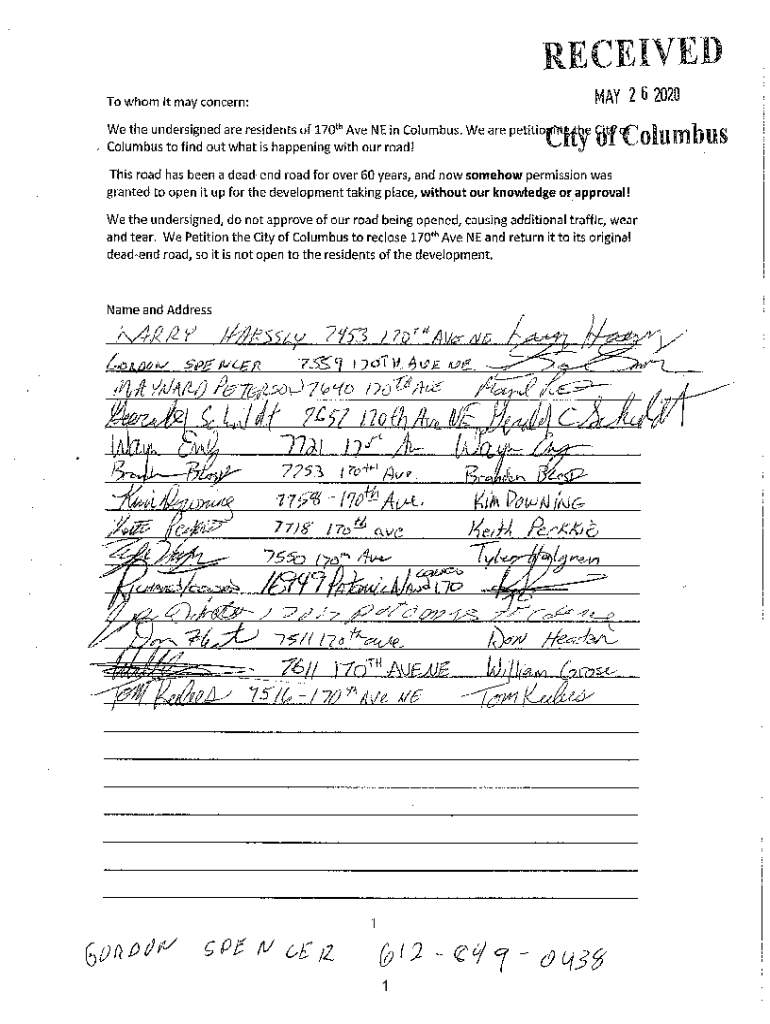 RECEIVED
MAY 26 2020
City of Columbus
To whom it may concern:
We the undersigned are residents of 170th Ave NE in Columbus. We are petitioning the City of
Columbus to find out what is happening with our road!
This road has been a dead-end road for over 60 years, and now somehow permission was
granted to open it up for the development taking place, without our knowledge or approval!
We the undersigned, do not approve of our road being opened, causing additional traffic, wear
and tear. We Petition the City of Columbus to reclose 170th Ave NE and return it to its original
dead-end road, so it is not open to the residents of the development.
Name and Address
LARRY HAESSLY 7453 170TH AVE NE
GORDON SPENCER 7559 170TH AVE NE
MAYNARD PETERSON 7640 170th AVE
7657 170th Ave NE Gerald C Schmidt
Wayn 7721 Wayn
7253 170th Ave. Branden
7758-170th Ave. KIM DOWNING
7718 170th ave Keith Perkkio
7550 170th Ave Tyler Halgren
16949 Potomic 170
Don 7511 170th ave Don Heaton
7611 170TH AVE NE William Grose
TOM 7516-170th Ave NE Tom
1
GORDON SPENCER 612-849-0438
1